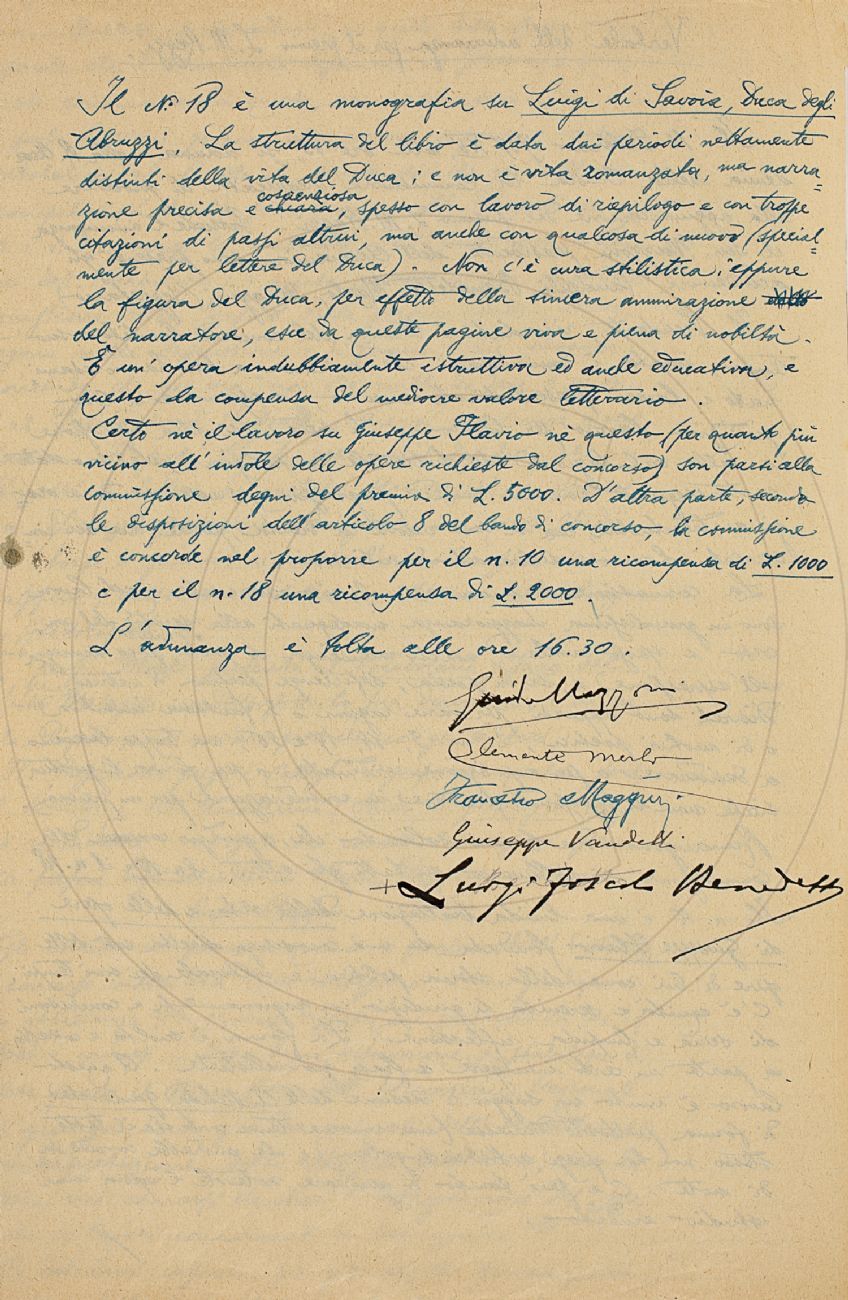 Il Nº 18 è una monografia su Luigi di Savoia, Duca degli
Abruzzi. La struttura del libro è data dai periodi nettamente
distinti della vita del Duca; e non è vita romanzata, ma narra=
coscenziosa
zione precisa e chiara, spesso con lavoro di riepilogo e con troppe
citazioni di passi altrui, ma anche con qualcosa di nuovo (special=
mente per lettere del Duca). Non c'è cura stilistica; eppure
la figura del Duca, per effetto della sincera ammirazione
del narratore, esce da queste pagine viva e piena di nobiltà.
È un' opera indubbiamente istruttiva ed anche educativa, e
questo la compensa del mediocre valore letterario.
Certo nè il lavoro su Giuseppe Flavio nè questo (per quanto più
vicino all' indole delle opere richieste dal concorso) son parsi alla
commissione degni del premio di L. 5000. D'altra parte, secondo
le disposizioni dell' articolo 8 del bando di concorso, la commissione
è concorde nel proporre per il n. 10 una ricompensa di L. 1000
e per il n. 18 una ricompensa di L. 2000.
L'adunanza è tolta alle ore 16.30.
Guido Mazzoni
Clemente Merlo
Francesco Maggini
Giuseppe Vandelli
+ Luigi Foscolo Benedetto